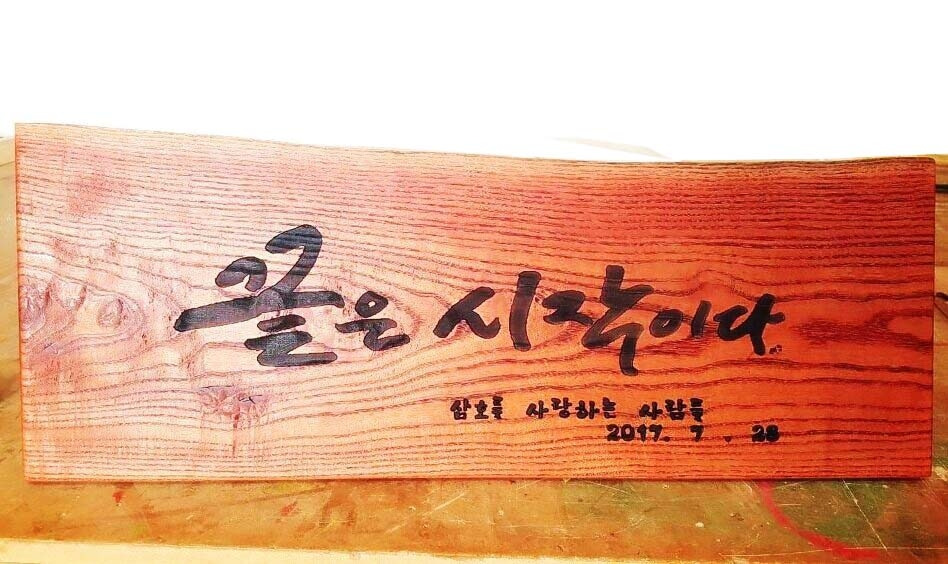 꼴은 시작이다
삼호를 사랑하는 사람들
2017. 7. 28